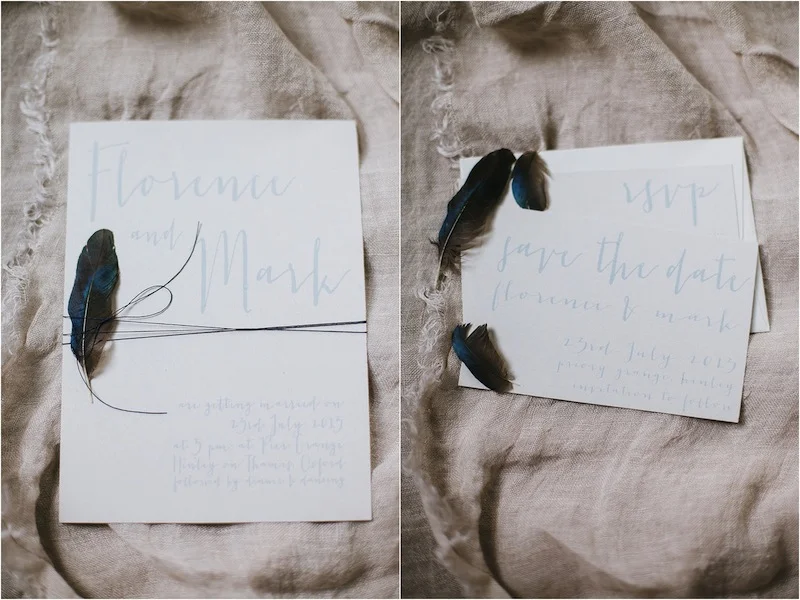 Florence
and
Mark
are getting married on
23rd July 2015
at 5 pm at
Henley on Thames
followed by dinner & dancing
rsvp
save the date
florence & mark
23rd July 2015
priory grange, henley
invitation to follow